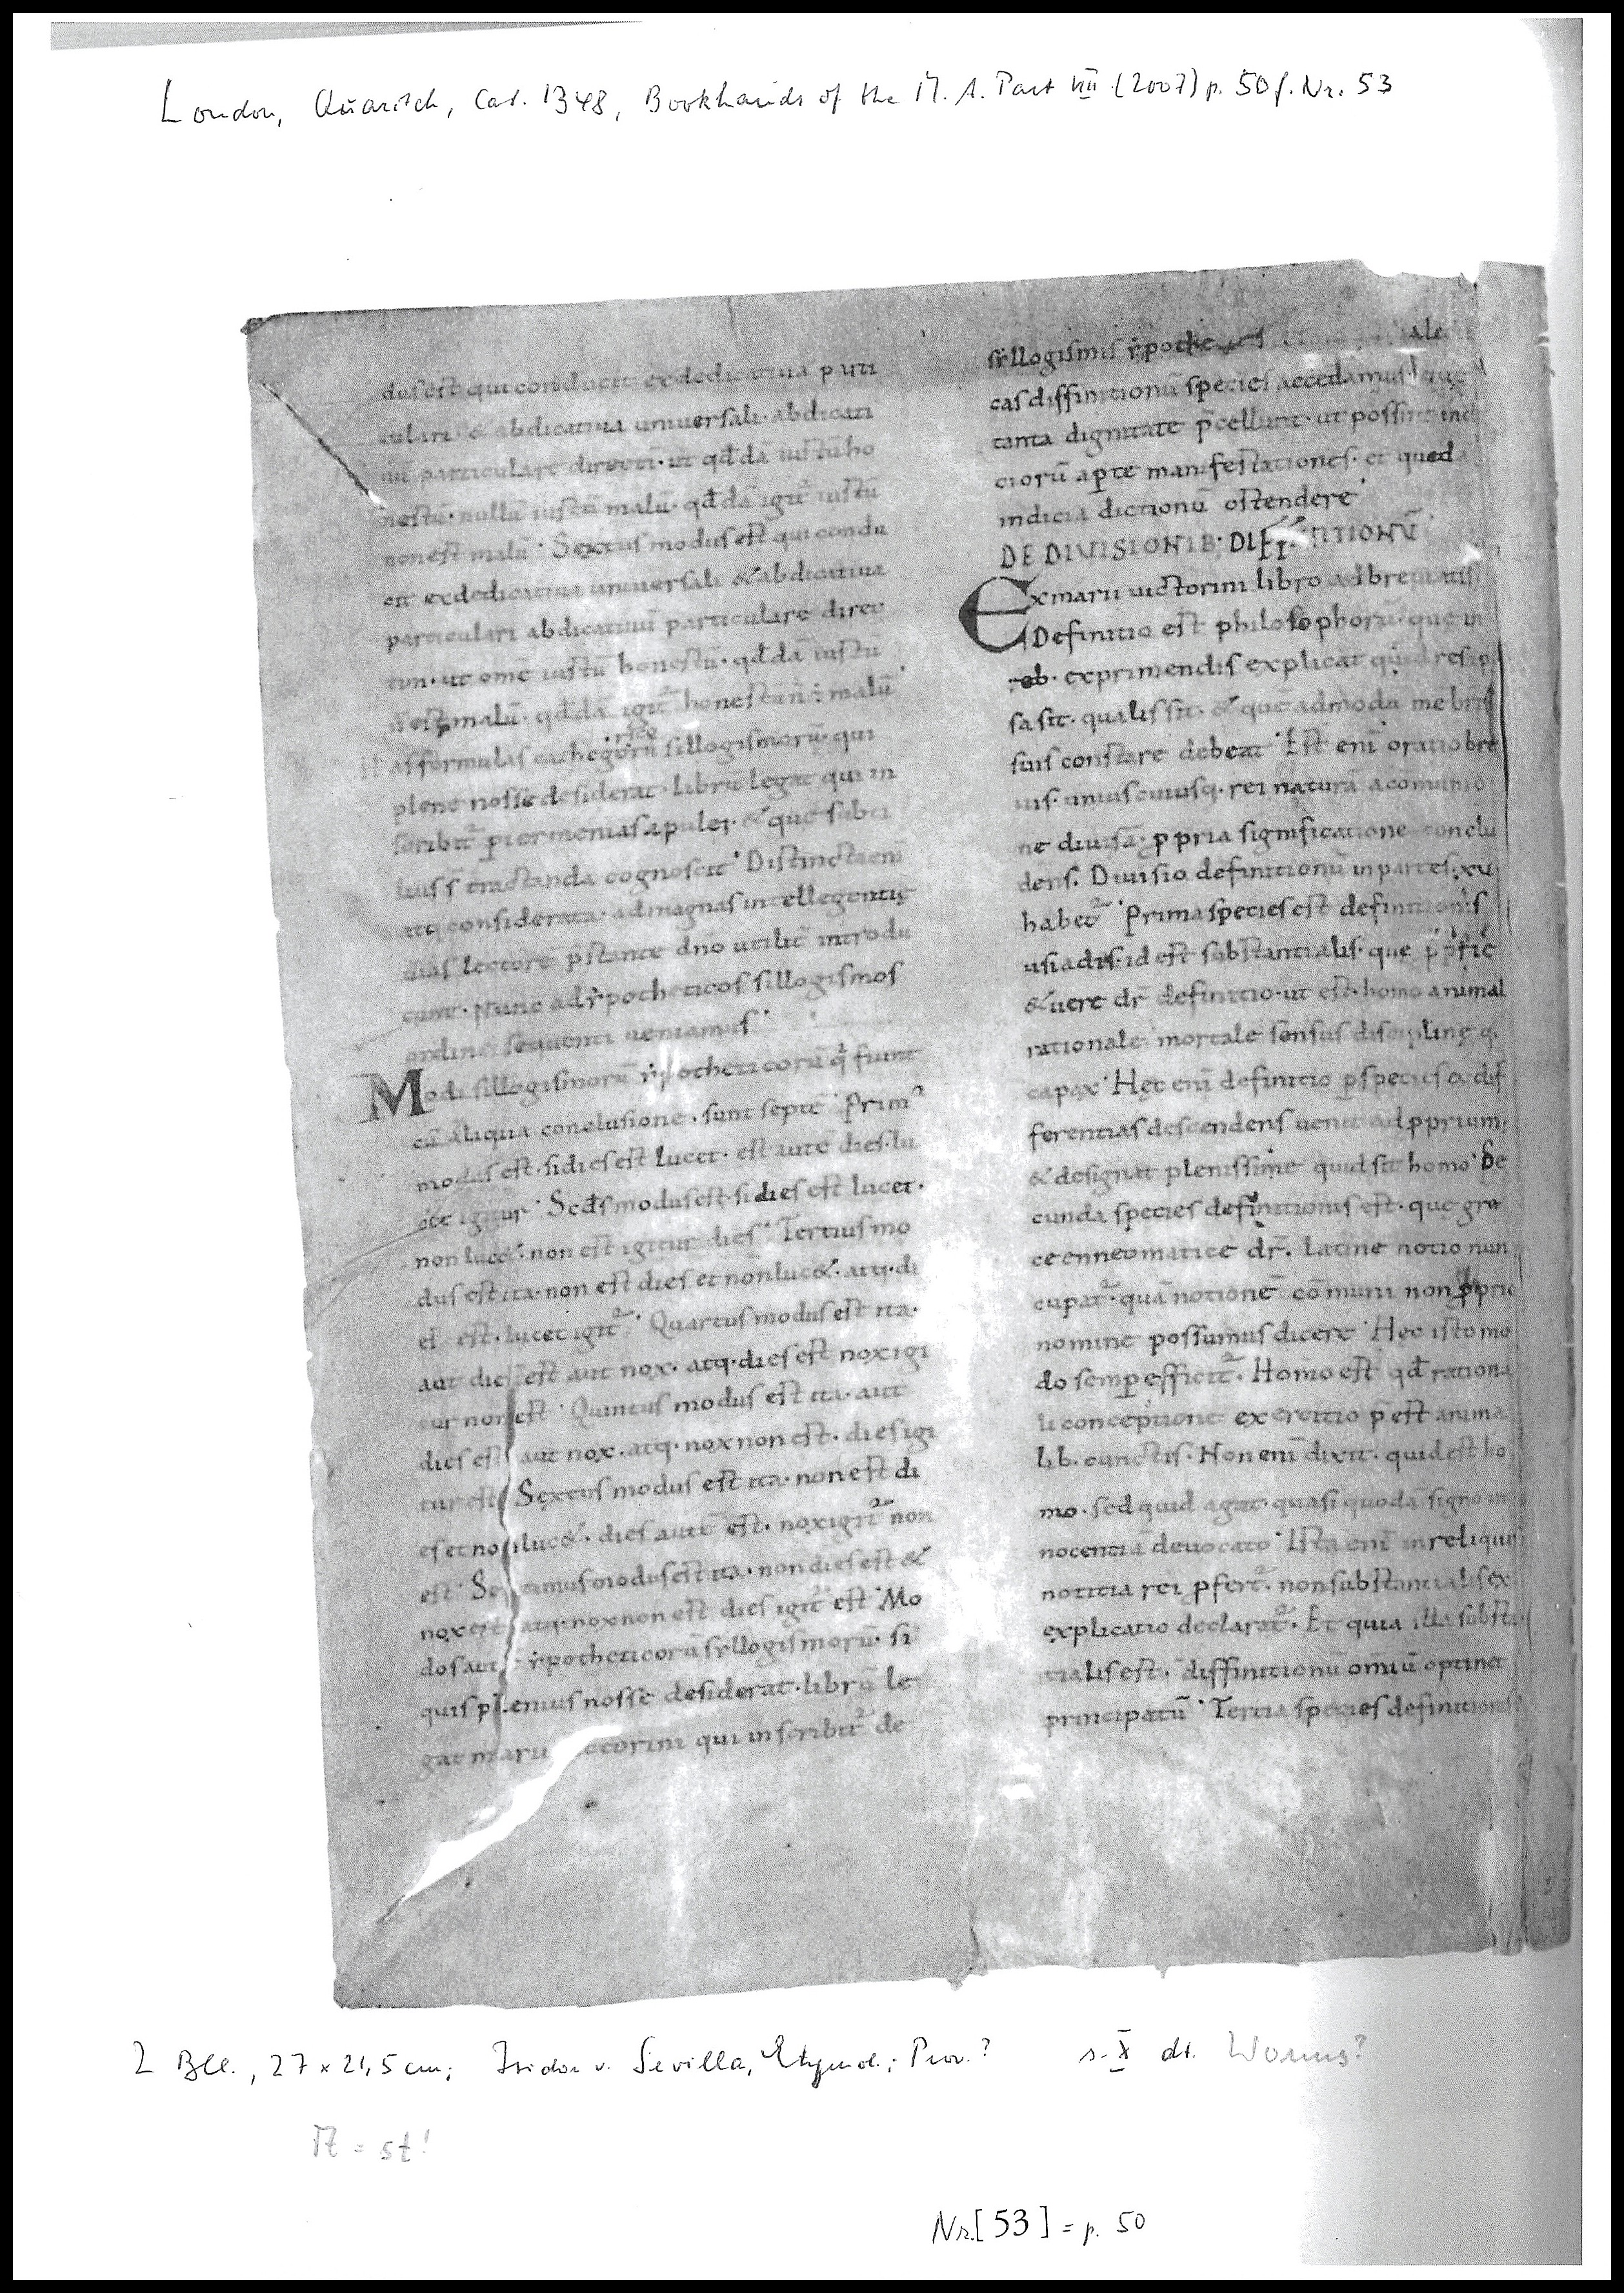 London, Quaritch, Cat. 1348, Bookhands of the M. A. Part VII (2007) p. 50f. Nr. 53
dus est qui conducit ex dedicatiua parti
culari & abdicatiua uniuersali abdicati
uū particulare directī ut qđdā iustū ho
nestū nullū iustū malū qđdā igit᷒ iustū
non est malū Sextus modus est qui condu
cit ex dedicatiua uniuersali & abdicatiua
particulari abdicatiuū particulare direc
tim ut omē iustū honestū qđdā iustū
malū qđdā igit᷒ honestū malū
as formulas cathegorū sillogismorū qui
plene nosse desiderat librū legat qui in
scribit᷒ ꝑiermenias apulei & quę subti
tractanda cognoscit Distincta enī
atq considerata ad magnas intellegentię
uias lectorē p̄stante dn̄o utilit̄ introdu
cunt Nunc ad ypotheticos sillogismos
ordine sequenti ueniamus
Modi sillogismorū ypotheticorū qi fiunt
cū aliqua conclusione sunt septē Prim᷒
modus est si dies est lucet est autē dies lu
cet igitur Scds modus est si dies est lucet
non luc& non est igitur dies Tertius mo
dus est ita non est dies et non luc& atq di
es est lucet igit᷒ Quartus modus est ita
aut dies est aut nox atq dies est nox igi
tur non est Quintus modus est ita aut
dies est aut nox atq nox non est dies igi
tur est Sextus modus est ita non est di
es et no luc& dies autē est nox igit᷒ non
est Se timus modus est ita non dies est &
nox est atq nox non est dies igit᷒ est Mo
dos aut ypotheticorū syllogismorū si
quis plenius nosse desiderat librū le
gat marii ctorini qui inscribit᷒ de
syllogismis ypothe
cas diffinitionū species accedamus quę
tanta dignitate p̄cellunt ut possint ind
ciorū aꝑte manifestationes et quęda
indicia dictionū ostendere
DE DIVISIONIB DIF ITIONŪ
Ex marii uictorini libro adbreuiatis
Definitio est philosophorū quę in
reb exprimendis explicat quid res ip
sa sit qualis sit & quē admodū mēbris
suis constare debeat Est enī oratio bre
uis unius cuiusq rei naturā a comunio
ne diuisā ꝓpria significatione conclu
dens Diuisio definitionū in partes xv
habet᷒ Prima species est definitionis
usiadis id est substantialis que
& uere dr̄ definitio ut est homo animal
rationale mortale sensus disciplinę q
capax Hęc enī definitio ꝑ species & dif
ferentias descendens uenit ad ꝓprium
& designat plenissime quid sit homo Se
cunda species definitionis est quę gre
ce enneomatice dr̄ latine notio nun
cupat᷒ quā notionē cōmuni non ꝓprio
nomine possumus dicere Hec isto mo
do semꝑ efficit᷒ Homo est qđ rationa
li conceptione exercitio p̄est anima
lib cunctis Non enī dixit quid est ho
mo sed quid agat quasi quodā signo in
nocentiā deuocato Ista enī in reliquis
notitia rei ꝓfert᷒ non substantialis ex
explicatio declarat᷒ Et quia illa substā
tialis est diffinitionū omiū optinet
principatū Tertia species definitionis
2 Bll., 27 x 21,5 cm; Isidor v. Sevilla, Etymol.; Prov.? s. X dt. Worms?
= st!
Nr. [53] = p. 50